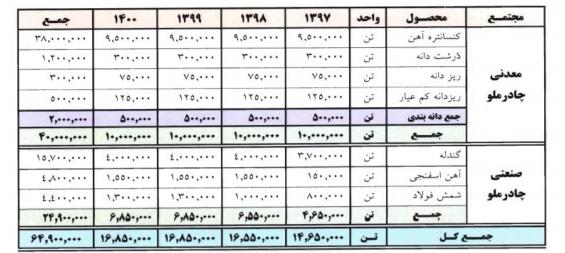 مجتمـع محصـول واحد ۱۳۹۷ ۱۳۹۸ ۱۳۹۹ ۱۴۰۰ جمـع
معدنی چادرملو
کنسانتره آهن تن ۹,۵۰۰,۰۰۰ ۹,۵۰۰,۰۰۰ ۹,۵۰۰,۰۰۰ ۹,۵۰۰,۰۰۰ ۳۸,۰۰۰,۰۰۰
درشت دانه تن ۳۰۰,۰۰۰ ۳۰۰,۰۰۰ ۳۰۰,۰۰۰ ۳۰۰,۰۰۰ ۱,۲۰۰,۰۰۰
ریز دانه تن ۷۵,۰۰۰ ۷۵,۰۰۰ ۷۵,۰۰۰ ۷۵,۰۰۰ ۳۰۰,۰۰۰
ریزدانه کم عیار تن ۱۲۵,۰۰۰ ۱۲۵,۰۰۰ ۱۲۵,۰۰۰ ۱۲۵,۰۰۰ ۵۰۰,۰۰۰
جمع دانه بندی تن ۵۰۰,۰۰۰ ۵۰۰,۰۰۰ ۵۰۰,۰۰۰ ۵۰۰,۰۰۰ ۲,۰۰۰,۰۰۰
جمـع تن ۱۰,۰۰۰,۰۰۰ ۱۰,۰۰۰,۰۰۰ ۱۰,۰۰۰,۰۰۰ ۱۰,۰۰۰,۰۰۰ ۴۰,۰۰۰,۰۰۰
صنعتی چادرملو
گندله تن ۳,۷۰۰,۰۰۰ ۴,۰۰۰,۰۰۰ ۴,۰۰۰,۰۰۰ ۴,۰۰۰,۰۰۰ ۱۵,۷۰۰,۰۰۰
آهن اسفنجی تن ۱۵۰,۰۰۰ ۱,۵۵۰,۰۰۰ ۱,۵۵۰,۰۰۰ ۱,۵۵۰,۰۰۰ ۴,۸۰۰,۰۰۰
شمش فولاد تن ۸۰۰,۰۰۰ ۱,۰۰۰,۰۰۰ ۱,۳۰۰,۰۰۰ ۱,۳۰۰,۰۰۰ ۴,۴۰۰,۰۰۰
جمـع تن ۴,۶۵۰,۰۰۰ ۶,۵۵۰,۰۰۰ ۶,۸۵۰,۰۰۰ ۶,۸۵۰,۰۰۰ ۲۴,۹۰۰,۰۰۰
جمـع کـل تـن ۱۴,۶۵۰,۰۰۰ ۱۶,۵۵۰,۰۰۰ ۱۶,۸۵۰,۰۰۰ ۱۶,۸۵۰,۰۰۰ ۶۴,۹۰۰,۰۰۰